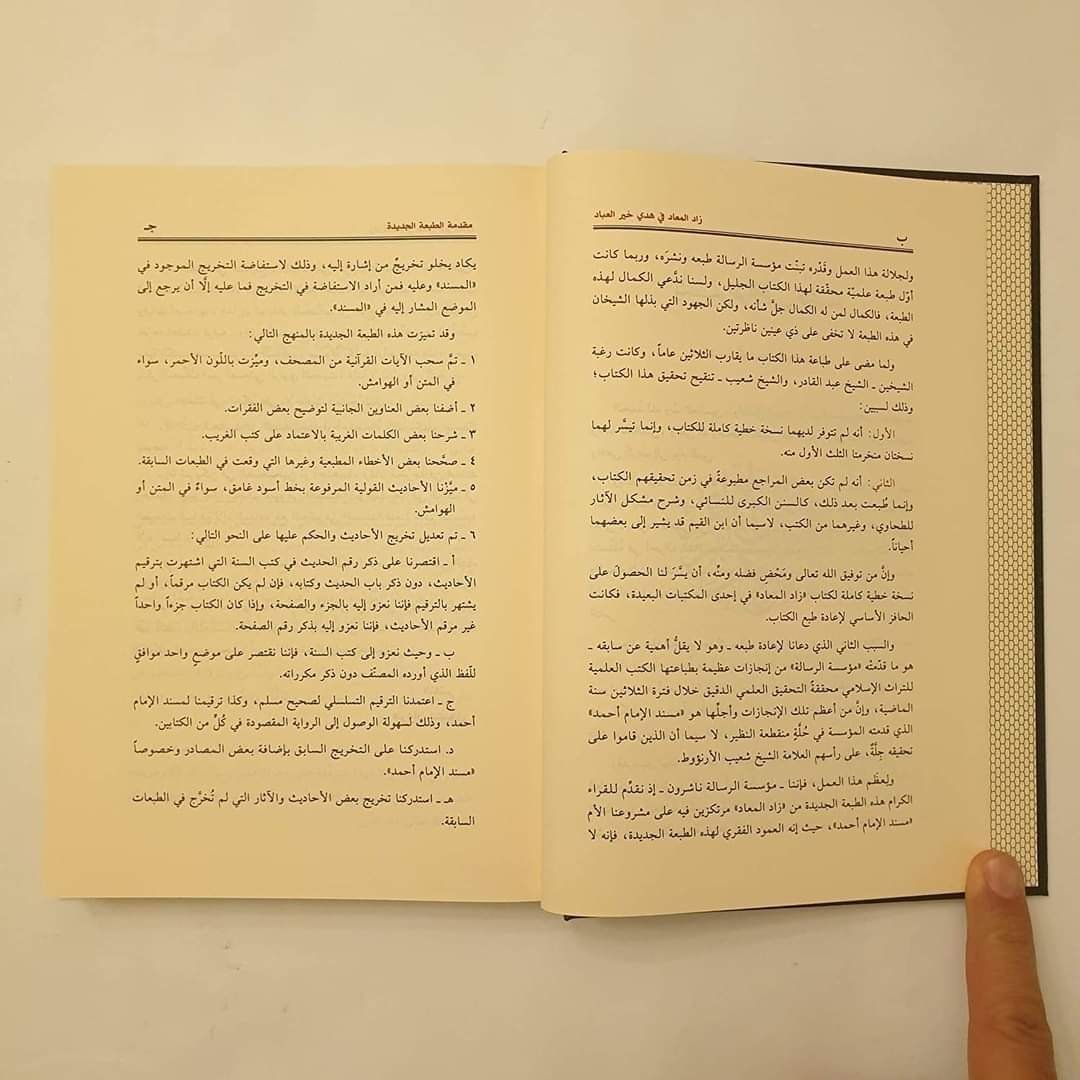 زاد المعاد في هدي خير العباد
ب
ولجلالة هذا العمل وقَدْره تبنّت مؤسسة الرسالة طبعه ونشرَه، وربما كانت
أوّل طبعة علميّة محقّقة لهذا الكتاب الجليل، ولسنا ندَّعي الكمال لهذه
الطبعة، فالكمال لمن له الكمال جلَّ شأنه، ولكن الجهود التي بذلها الشيخان
في هذه الطبعة لا تخفى على ذي عينين ناظرتين.
ولما مضى على طباعة هذا الكتاب ما يقارب الثلاثين عاماً، وكانت رغبة
الشيخين ـ الشيخ عبد القادر، والشيخ شعيب ـ تنقيح تحقيق هذا الكتاب؛
وذلك لسببين:
الأول: أنه لم تتوفر لديهما نسخة خطية كاملة للكتاب، وإنما تيسَّر لهما
نسختان منخرمتا الثلث الأول منه.
الثاني: أنه لم تكن بعض المراجع مطبوعةً في زمن تحقيقهم الكتاب،
وإنما طُبعت بعد ذلك، كالسنن الكبرى للنسائي، وشرح مشكل الآثار
للطحاوي، وغيرهما من الكتب، لاسيما أن ابن القيم قد يشير إلى بعضهما
أحياناً.
وإنَّ من توفيق الله تعالى ومَحْضِ فضله ومنِّه، أن يسَّرَ لنا الحصولَ على
نسخة خطية كاملة لكتاب «زاد المعاد» في إحدى المكتبات البعيدة، فكانت
الحافز الأساسي لإعادة طبع الكتاب.
والسبب الثاني الذي دعانا لإعادة طبعه ـ وهو لا يقلُّ أهمية عن سابقه ـ
هو ما قدّمتْه «مؤسسة الرسالة» من إنجازات عظيمة بطباعتها الكتب العلمية
للتراث الإسلامي محققةً التحقيق العلمي الدقيق خلال فترة الثلاثين سنة
الماضية، وإنَّ من أعظم تلك الإنجازات وأجلِّها هو «مسند الإمام أحمد»
الذي قدمته المؤسسة في حُلَّةٍ منقطعة النظير، لا سيما أن الذين قاموا على
تحقيقه جِلَّةٌ، على رأسهم العلامة الشيخ شعيب الأرنؤوط.
ولِعظَم هذا العمل، فإننا ـ مؤسسة الرسالة ناشرون ـ إذ نقدِّم للقراء
الكرام هذه الطبعة الجديدة من «زاد المعاد» مرتكزين فيه على مشروعنا الأم
«مسند الإمام أحمد»، حيث إنه العمود الفقري لهذه الطبعة الجديدة، فإنه لا
مقدمة الطبعة الجديدة
جـ
يكاد يخلو تخريجٌ من إشارة إليه، وذلك لاستفاضة التخريج الموجود في
«المسند» وعليه فمن أراد الاستفاضة في التخريج فما عليه إلَّا أن يرجع إلى
الموضع المشار إليه في «المسند».
وقد تميزت هذه الطبعة الجديدة بالمنهج التالي:
١ ـ تمَّ سحب الآيات القرآنية من المصحف، وميِّزت باللّون الأحمر، سواء
في المتن أو الهوامش.
٢ ـ أضفنا بعض العناوين الجانبية لتوضيح بعض الفقرات.
٣ ـ شرحنا بعض الكلمات الغريبة بالاعتماد على كتب الغريب.
٤ ـ صحَّحنا بعض الأخطاء المطبعية وغيرها التي وقعت في الطبعات السابقة.
٥ ـ ميَّزْنا الأحاديث القولية المرفوعة بخط أسود غامق، سواءٌ في المتن أو
الهوامش.
٦ ـ تم تعديل تخريج الأحاديث والحكم عليها على النحو التالي:
أ ـ اقتصرنا على ذكر رقم الحديث في كتب السنة التي اشتهرت بترقيم
الأحاديث، دون ذكر باب الحديث وكتابه، فإن لم يكن الكتاب مرقماً، أو لم
يشتهر بالترقيم فإننا نعزو إليه بالجزء والصفحة، وإذا كان الكتاب جزءاً واحداً
غير مرقم الأحاديث، فإننا نعزو إليه بذكر رقم الصفحة.
ب ـ وحيث نعزو إلى كتب السنة، فإننا نقتصر على موضعٍ واحد موافقٍ
للّفظ الذي أورده المصنّف دون ذكر مكرراته.
ج ـ اعتمدنا الترقيم التسلسلي لصحيح مسلم، وكذا ترقيمنا لمسند الإمام
أحمد، وذلك لسهولة الوصول إلى الرواية المقصودة في كُلٍّ من الكتابين.
د. استدركنا على التخريج السابق بإضافة بعض المصادر وخصوصاً
«مسند الإمام أحمد».
هـ ـ استدركنا تخريج بعض الأحاديث والآثار التي لم تُخرَّج في الطبعات
السابقة.